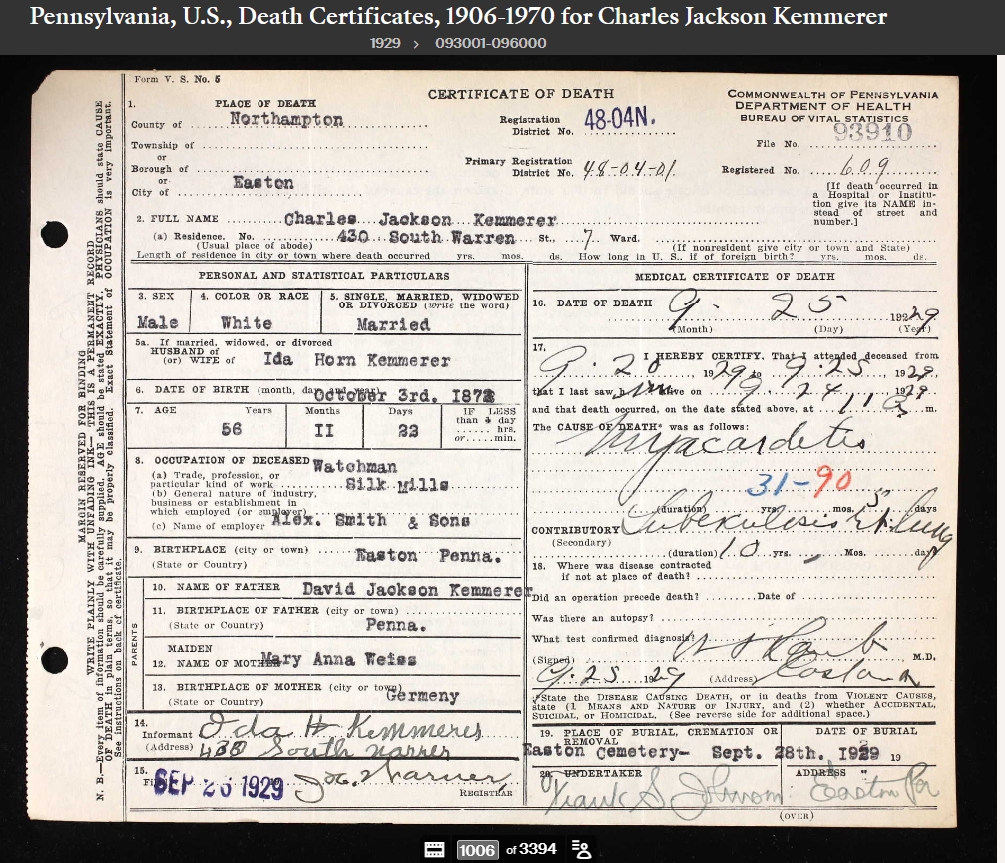 Pennsylvania, U.S., Death Certificates, 1906-1970 for Charles Jackson Kemmerer
1929 > 093001-096000
Form V. S. No. 5
CERTIFICATE OF DEATH
COMMONWEALTH OF PENNSYLVANIA
DEPARTMENT OF HEALTH
BUREAU OF VITAL STATISTICS
File No. 93910
Registered No. 609
[If death occurred in
a Hospital or Institu-
tion give its NAME in-
stead of street and
number.]
1. PLACE OF DEATH
County of Northampton
Township of
or
Borough of
or
City of Easton
Registration
District No. 48-04N.
Primary Registration
District No. 48-04-01
2. FULL NAME Charles Jackson Kemmerer
(a) Residence. No. 430 South Warren St., 7 Ward.
(Usual place of abode) (If nonresident give city or town and State)
Length of residence in city or town where death occurred yrs. mos. ds. How long in U. S., if of foreign birth? yrs. mos. ds.
PERSONAL AND STATISTICAL PARTICULARS
3. SEX
Male
4. COLOR OR RACE
White
5. SINGLE, MARRIED, WIDOWED
OR DIVORCED (write the word)
Married
5a. If married, widowed, or divorced
HUSBAND of
(or) WIFE of Ida Horn Kemmerer
6. DATE OF BIRTH (month, day and year) October 3rd. 1872
7. AGE Years Months Days IF LESS
than 1 day
hrs.
or min.
56 II 22
8. OCCUPATION OF DECEASED Watchman
(a) Trade, profession, or
particular kind of work Silk Mills
(b) General nature of industry,
business or establishment in
which employed (or employer)
(c) Name of employer Alex. Smith & Sons
9. BIRTHPLACE (city or town) Easton Penna.
(State or Country)
PARENTS
10. NAME OF FATHER David Jackson Kemmerer
11. BIRTHPLACE OF FATHER (city or town)
(State or Country) Penna.
MAIDEN
12. NAME OF MOTHER Mary Anna Weiss
13. BIRTHPLACE OF MOTHER (city or town)
(State or Country) Germeny
14.
Informant Ida H Kemmerer
(Address) 430 South Warren
15.
Filed SEP 26 1929 Warner
REGISTRAR
MEDICAL CERTIFICATE OF DEATH
16. DATE OF DEATH 9 - 25 1929
(Month) (Day) (Year)
17.
I HEREBY CERTIFY, That I attended deceased from
9 - 20, 1929 to 9-25, 1929,
that I last saw him alive on 9 - 24, 1929
and that death occurred, on the date stated above, at m.
The CAUSE OF DEATH* was as follows:
Myacardetis
31-90
(duration) yrs. mos. 5 days
CONTRIBUTORY Tuberkulosis Rt. lung
(Secondary)
(duration) 10 yrs. Mos. days
18. Where was disease contracted
if not at place of death?
Did an operation precede death? Date of
Was there an autopsy?
What test confirmed diagnosis?
(Signed) M.D.
9-25 1929 (Address) Easton
*State the DISEASE CAUSING DEATH, or in deaths from VIOLENT CAUSES,
state (1 MEANS AND NATURE OF INJURY, and (2) whether ACCIDENTAL,
SUICIDAL, or HOMICIDAL. (See reverse side for additional space.)
19. PLACE OF BURIAL, CREMATION OR
REMOVAL
DATE OF BURIAL
Easton Cemetery- Sept. 28th. 1929 19
20. UNDERTAKER ADDRESS
Frank S. Johnson Easton Pa
(OVER)
MARGIN RESERVED FOR BINDING
WRITE PLAINLY WITH UNFADING INK— THIS IS A PERMANENT RECORD
N. B.—Every item of information should be carefully supplied. AGE should be stated EXACTLY. PHYSICIANS should state CAUSE
OF DEATH in plain terms, so that it may be properly classified. Exact Statement of OCCUPATION is very important.
See instructions on back of certificate.
1006 of 3394